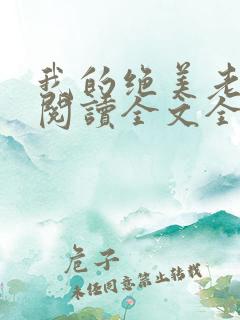 我的绝美老
阅读全文全
危子
未经同意禁止转载